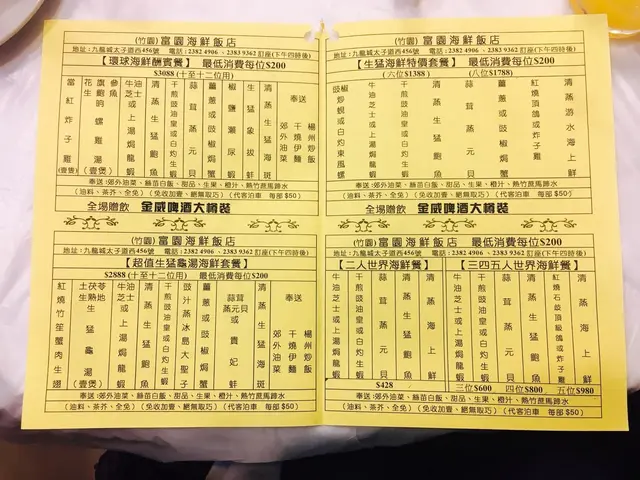 (竹園) 富園海鮮飯店
地址:九龍城太子道西456號 電話:2382 4906、2383 9362 訂座(下午四時後)
【環球海鮮酬賓餐】 最低消費每位$200
$3088(十至十二位用)
當紅炸子雞(壹隻)
花旗參
生魚
螺雞湯(壹煲)
牛油芝士或上湯焗龍蝦
清蒸生猛鮑魚
干煎豉油皇或白灼生蝦
蒜茸蒸元貝
薑蔥或豉椒焗蟹
椒鹽瀨尿蝦
生猛象拔蚌
清蒸生猛海斑
奉送
郊外油菜
干燒伊麵
楊州炒飯
奉送:郊外油菜、絲苗白飯、甜品、生果、橙汁、熱竹蔗馬蹄水
(油料、茶芥、全免) (免收加壹、絕無取巧) (代客泊車 每部 $50)
全場贈飲 金威啤酒大樽裝
(竹園) 富園海鮮飯店
地址:九龍城太子道西456號 電話:2382 4906、2383 9362 訂座(下午四時後)
【生猛海鮮特價套餐】 最低消費每位$200
(六位$1388) (八位$1788)
豉椒炒蜆或白灼東風螺
牛油芝士或上湯焗龍蝦
干煎豉油皇或白灼生蝦
清蒸生猛鮑魚
蒜茸蒸元貝
薑蔥或豉椒焗蟹
紅燒頂鴿或炸子雞
清蒸游水海上鮮
奉送:郊外油菜、絲苗白飯、甜品、生果、橙汁、熱竹蔗馬蹄水
(油料、茶芥、全免) (免收加壹、絕無取巧) (代客泊車 每部 $50)
全場贈飲 金威啤酒大樽裝
(竹園) 富園海鮮飯店
地址:九龍城太子道西456號 電話:2382 4906、2383 9362 訂座(下午四時後)
【超值生猛龜湯海鮮套餐】
$2888(十至十二位用) 最低消費每位$200
紅燒竹笙蟹肉生翅
土茯苓
生熟地
生猛龜湯(壹煲)
牛油芝士或上湯焗龍蝦
清蒸生猛鮑魚
干煎豉油皇或白灼生蝦
豉汁蒸冰島大聖子
薑蔥或豉椒焗蟹
蒜茸蒸元貝或貴妃蚌
清蒸生猛海斑
奉送
郊外油菜
干燒伊麵
楊州炒飯
奉送:郊外油菜、絲苗白飯、甜品、生果、橙汁、熱竹蔗馬蹄水
(油料、茶芥、全免) (免收加壹、絕無取巧) (代客泊車 每部 $50)
(竹園) 富園海鮮飯店 最低消費每位$200
地址:九龍城太子道西456號 電話:2382 4906、2383 9362 訂座(下午四時後)
【二人世界海鮮餐】
牛油芝士或上湯焗龍蝦
清蒸生猛鮑魚
蒜茸蒸元貝
清蒸海上鮮
$428
【三四五人世界海鮮餐】
牛油芝士或上湯焗龍蝦
干煎豉油皇或白灼生蝦
清蒸生猛鮑魚
蒜茸蒸元貝
紅燒石岐頂級鴿或炸子雞
清蒸海上鮮
三位$600 四位$800 五位$980
奉送:郊外油菜、絲苗白飯、甜品、生果、橙汁、熱竹蔗馬蹄水
(油料、茶芥、全免) (免收加壹、絕無取巧) (代客泊車 每部 $50)